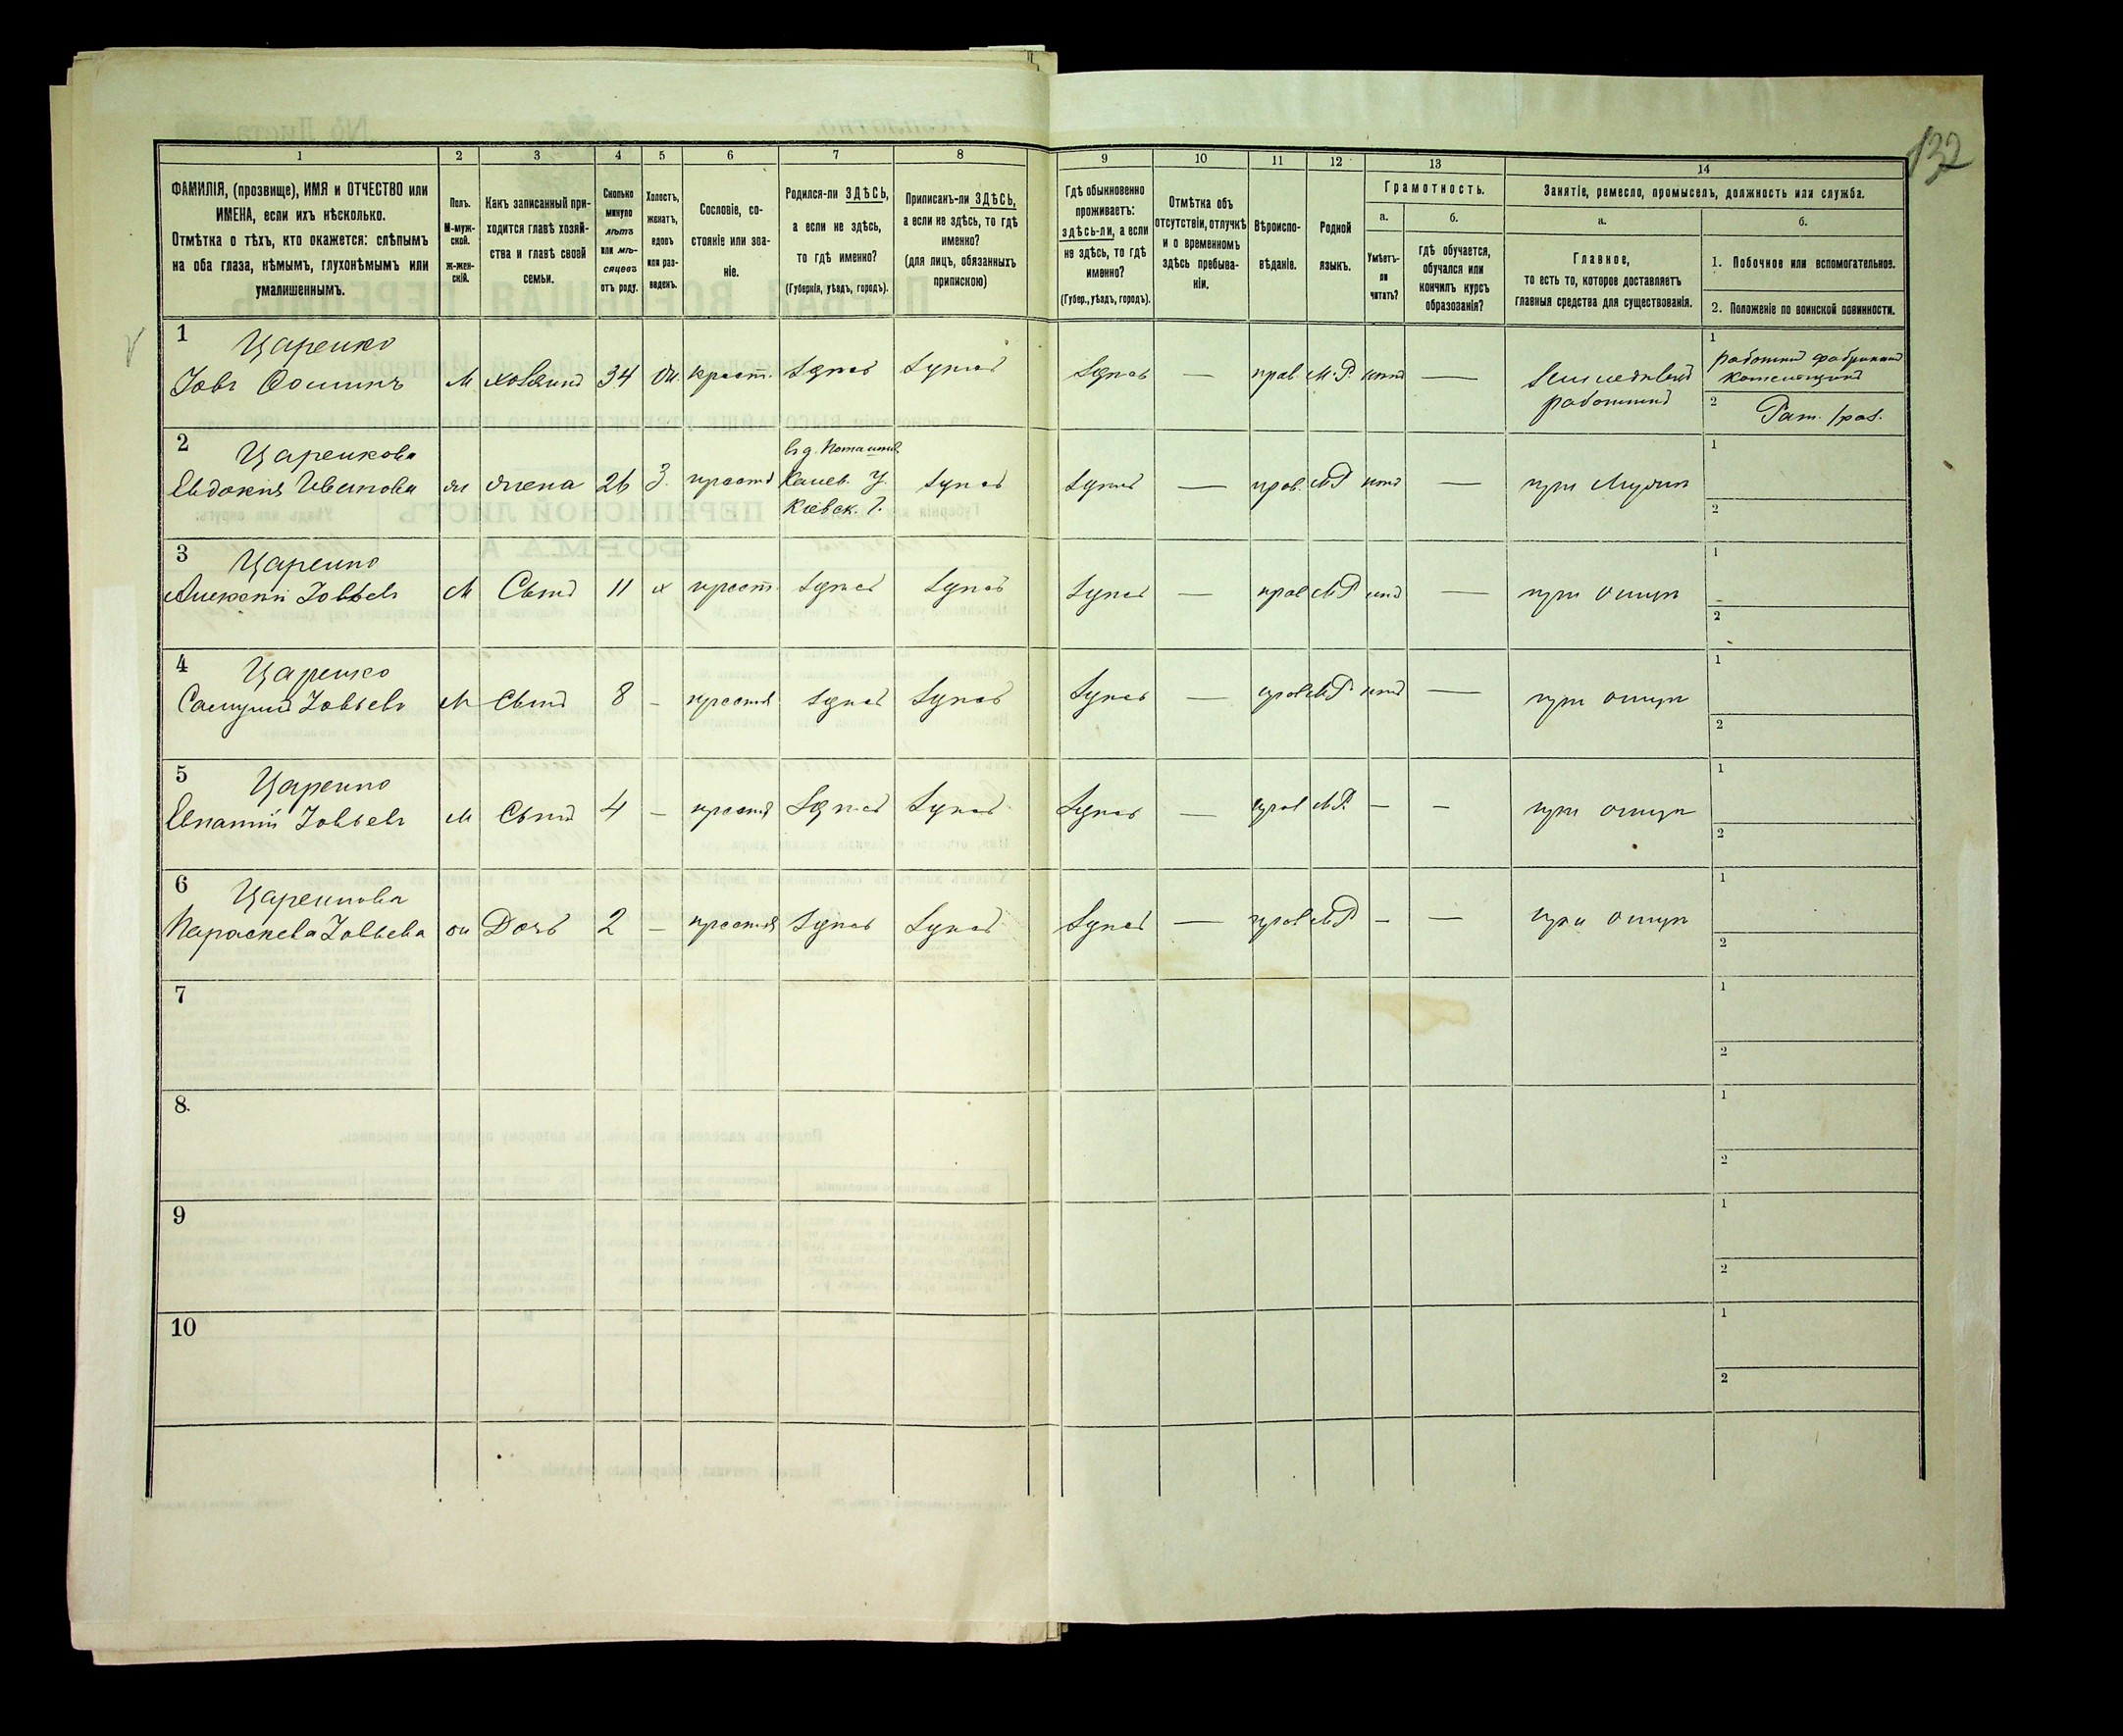 132
1 2 3 4 5 6 7 8 9 10 11 12 13 14
ФАМИЛІЯ, (прозвище), ИМЯ и ОТЧЕСТВО или
ИМЕНА, если ихъ нѣсколько.
Отмѣтка о тѣхъ, кто окажется: слѣпымъ
на оба глаза, нѣмымъ, глухонѣмымъ или
умалишеннымъ.
Полъ.
М-муж-
ской.
ж-жен-
скій.
Какъ записанный при-
ходится главѣ хозяй-
ства и главѣ своей
семьи.
Сколько
минуло
лѣтъ
или мѣ-
сяцевъ
отъ роду.
Холостъ,
женатъ,
вдовъ
или раз-
веденъ.
Сословіе, со-
стояніе или зва-
ніе.
Родился-ли ЗДѢСЬ,
а если не здѣсь,
то гдѣ именно?
(Губернія, уѣздъ, городъ).
Приписанъ-ли ЗДѢСЬ,
а если не здѣсь, то гдѣ
именно?
(для лицъ, обязанныхъ
припискою)
Гдѣ обыкновенно
проживаетъ:
здѣсь-ли, а если
не здѣсь, то гдѣ
именно?
(Губер., уѣздъ, городъ).
Отмѣтка объ
отсутствіи, отлучкѣ
и о временномъ
здѣсь пребыва-
ніи.
Вѣроиспо-
вѣданіе.
Родной
языкъ.
Грамотность.
а.
Умѣетъ-
ли
читать?
б.
Гдѣ обучается,
обучался или
кончилъ курсъ
образованія?
Занятіе, ремесло, промыселъ, должность или служба.
а.
Главное,
то есть то, которое доставляетъ
главныя средства для существованія.
б.
1. Побочное или вспомогательное.
2. Положеніе по воинской повинности.
1 Царенко
Іовъ Ѳоминъ М хозяинъ 34 ж. крест. здѣсь здѣсь здѣсь — прав. М.Р. нѣтъ —
работникъ
1
2 Рат. /раз.
2 Царенкова
Евдокія Иванова ж жена 26 З. крест
Канев. У.
Кіевск. Г.
здѣсь здѣсь — прав. МР нѣтъ — при мужѣ
1
2
3 Царенко
Алексѣй Іовлевъ М Сынъ 11 х крест. здѣсь здѣсь здѣсь — прав МР нѣтъ — при отцѣ
1
2
4 Царенко
Самуилъ Іовлевъ М Сынъ 8 - крест здѣсь здѣсь здѣсь — прав МР нѣтъ — при отцѣ
1
2
5 Царенко
Евпатій Іовлевъ М Сынъ 4 — крест здѣсь здѣсь здѣсь — прав МР — - при отцѣ
1
2
6 Царенкова
Параскева Іовлева ж Дочь 2 — крест здѣсь здѣсь здѣсь — прав МР - — при отцѣ
1
2
7
1
2
8.
1
2
9
1
2
10
1
2